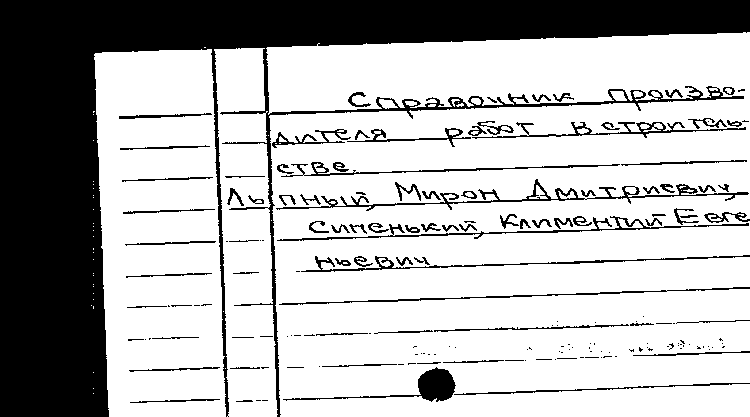 Справочник произво-
дителя работ в строитель-
стве.
Льпный, Мирон Дмитриевич,
Синенький, Климентий Евге
ньевич